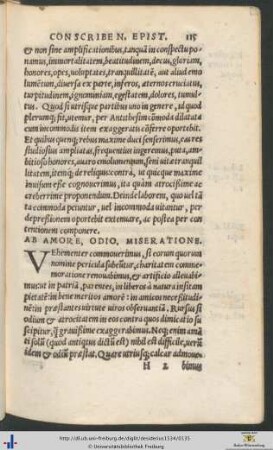 CONSCRIBEN. EPIST. 115
& non sine amplificationibus, tanquã in conspectu po-
namus, immortalitatem, beatitudinem, decus, gloriam,
honores, opes, voluptates, tranquillitatẽ, aut aliud emo
lumẽtum, diuersa ex parte, inferos, æternos cruciatus,
turpitudinem, ignominiam, egestatem, dolores, tumul-
tus. Quod si utrisque partibus uno in genere, id quod
plerumq; fit, utemur, per Antithesim cõmoda dilatata
cum incommodis item exaggeratis cõferre oportebit.
Et quibus quenq; rebus maxime duci senserimus, eas
studiosius ampliatas, frequentius ingeremus, puta, am-
bitioso honores, auaro emolumentum, seni uitæ tranquil
litatem, itemq; de reliquis contrà, ut quicque maxime
inuisum esse cognouerimus, ita quàm atrocissime ac
acerbe proponendum. Deinde laborem, quo uel tã
ta commoda petuntur, uel incommoda uitantur, per
depressionem oportebit extenuare, ac postea per con
tentionem componere.
AB AMORE, ODIO, MISERATIONE.
VEhementer commouerimus, si eorum quorum
nomine pericula subeũtur, charitatem comme-
moratione renouabimus, & artificio alleuabi-
mus: ut in patriã, parentes, in liberos à natura insitam
pietatẽ: in bene meritos amorẽ: in amicos necessitudi-
nẽ: in præstantes uirtute uiros obseruantiã. Rursus si
odium & atrocitatem in eos contra quos dimicatio su
scipitur, q̃ grauissime exaggerabimus. Neq; enim ama
ri solũ (quod antiquus dictũ est) nihil est difficile, uerũ
idem & odiũ præstat. Quare utriusq; calcar admoue-
H 2 bimus
http://dl.ub.uni-freiburg.de/diglit/desiderius1534/0135
© Universitätsbibliothek Freiburg